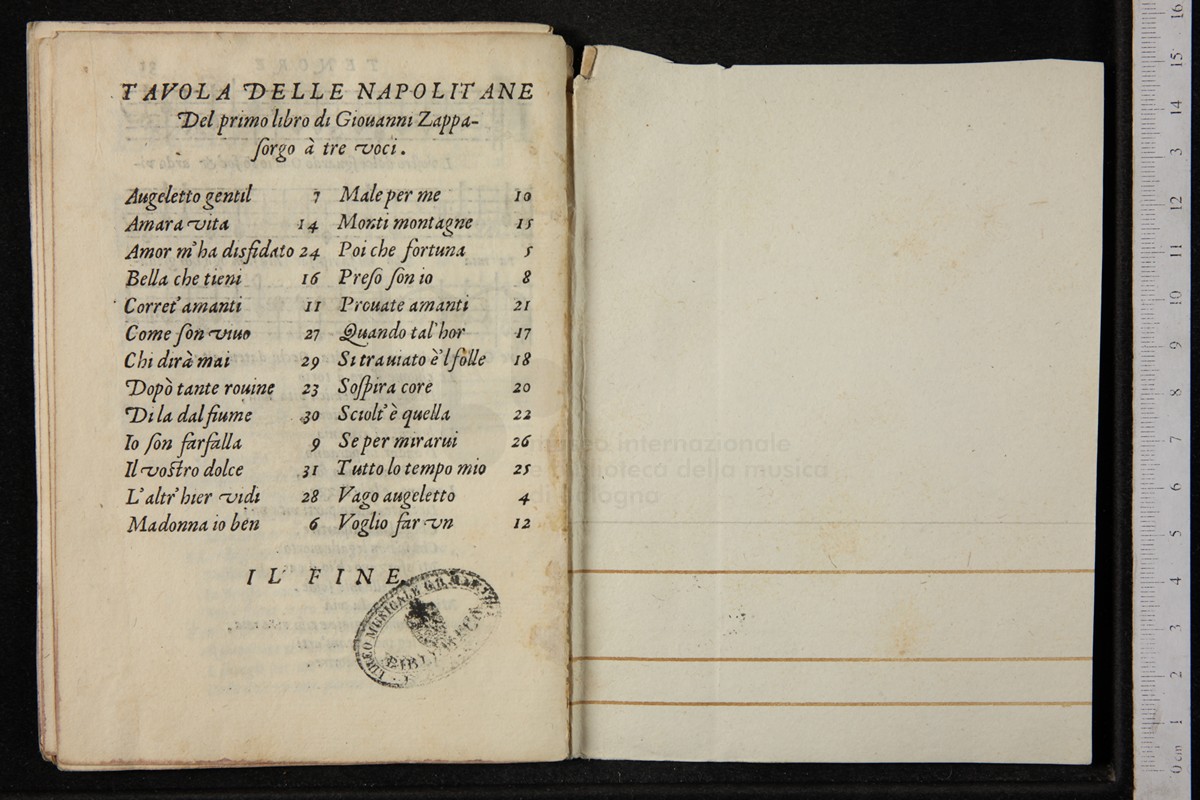 TAVOLA DELLE NAPOLITANE
Del primo libro di Giouanni Zappa-
ſorgo à tre voci.
Augeletto gentil 7
Amara vita 14
Amor m'ha disfidato 24
Bella che tieni 16
Corret' amanti 11
Come ſon viuo 27
Chi dirà mai 29
Dopò tante rouine 23
Di la dal fiume 30
Io ſon farfalla 9
Il voſtro dolce 31
L'altr'hier vidi 28
Madonna io ben 6
Male per me 10
Monti montagne 15
Poi che fortuna 5
Preſo ſon io 8
Prouate amanti 21
Quando tal'hor 17
Si trauiato è'l folle 18
Soſpira core 20
Sciolt'è quella 22
Se per mirarui 26
Tutto lo tempo mio 25
Vago augeletto 4
Voglio far vn 12
IL FINE.
LICEO MUSICALE G.B. MARTINI
museo internazionale
e biblioteca della musica
di bologna
0 cm 1 2 3 4 5 6 7 8 9 10 11 12 13 14 15 16